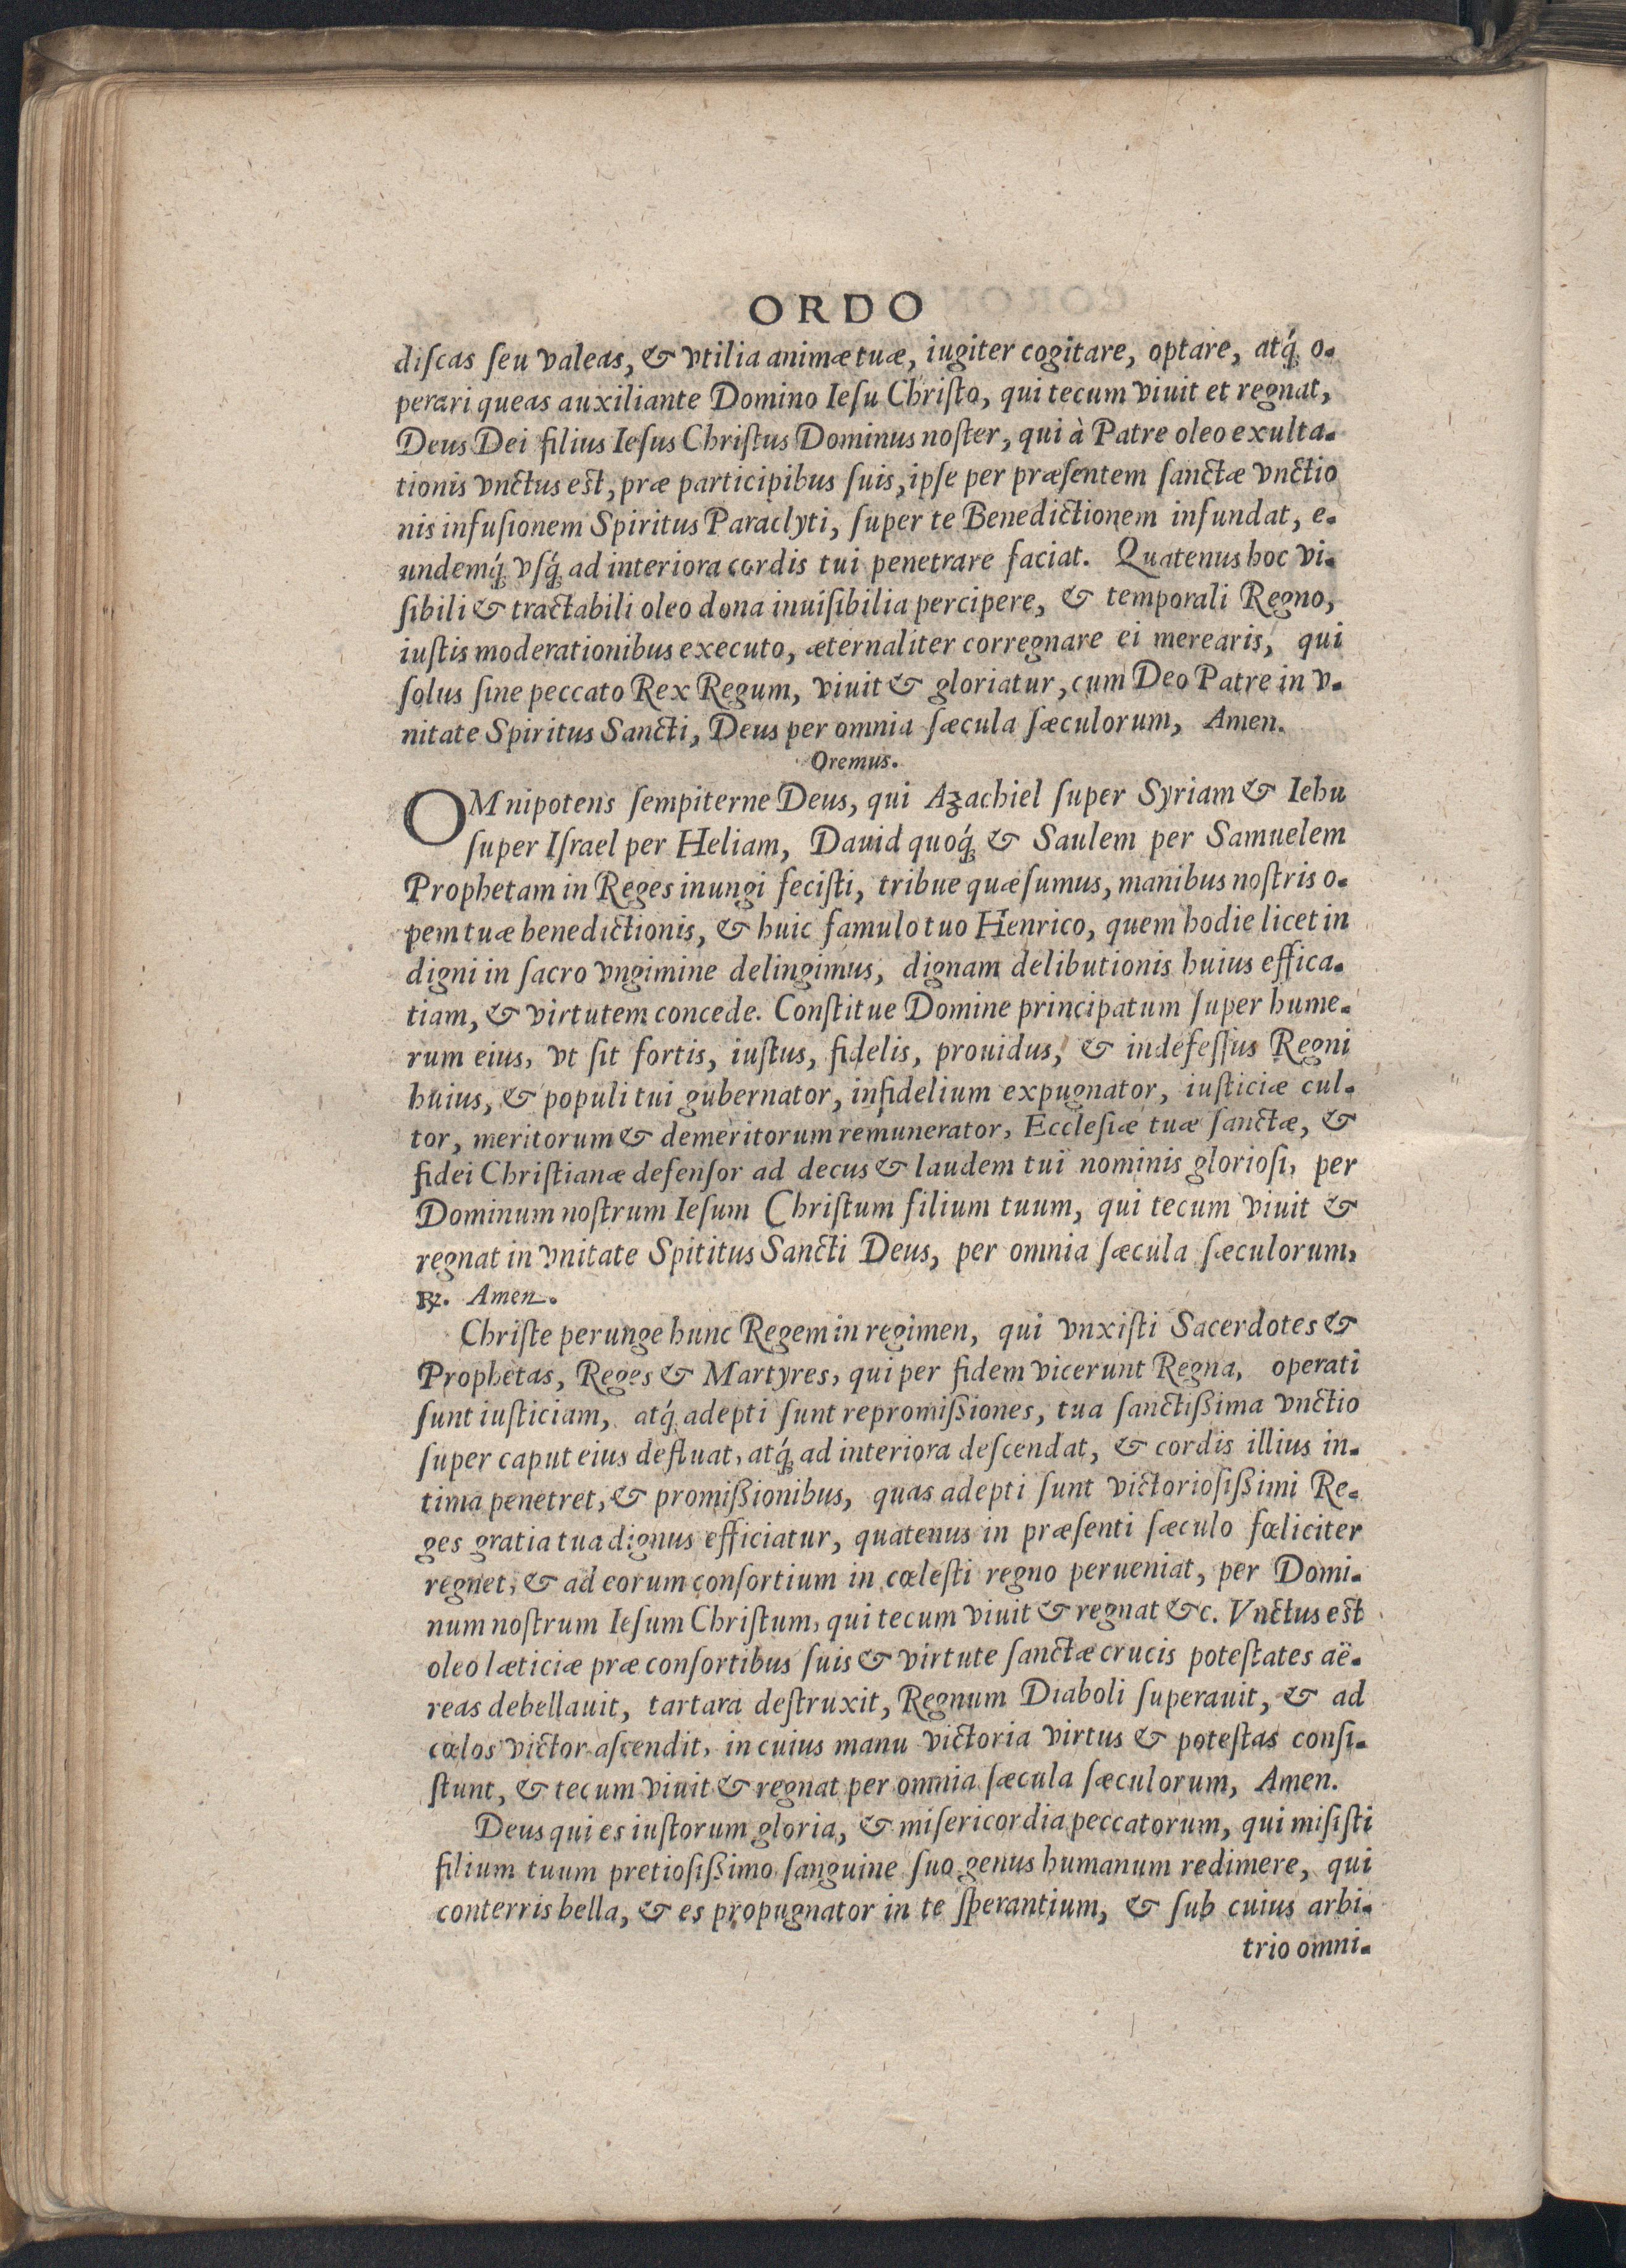 ORDO
diſcas ſeu valeas, & vtilia animæ tuæ, iugiter cogitare, optare, atq́; o-
perari queas auxiliante Domino Ieſu Chriſto, qui tecum viuit et regnat,
Deus Dei filius Ieſus Chriſtus Dominus noſter, qui à Patre oleo exulta-
tionis vnctus eſt, præ participibus ſuis, ipſe per præſentem ſanctæ vnctio
nis infuſionem Spiritus Paraclyti, ſuper te Benedictionem infundat, e-
undemq́; vſq́; ad interiora cordis tui penetrare faciat. Quatenus hoc vi-
ſibili & tractabili oleo dona inuiſibilia percipere, & temporali Regno,
iuſtis moderationibus executo, æternaliter corregnare ei merearis, qui
ſolus ſine peccato Rex Regum, viuit & gloriatur, cum Deo Patre in v-
nitate Spiritus Sancti, Deus per omnia ſæcula ſæculorum, Amen.
Oremus.
OMnipotens ſempiterne Deus, qui Azachiel ſuper Syriam & Iehu
ſuper Iſrael per Heliam, Dauid quoq́; & Saulem per Samuelem
Prophetam in Reges inungi feciſti, tribue quæſumus, manibus noſtris o-
pem tuæ benedictionis, & huic famulo tuo Henrico, quem hodie licet in
digni in ſacro vngimine delingimus, dignam delibutionis huius effica-
tiam, & virtutem concede. Conſtitue Domine principatum ſuper hume-
rum eius, vt ſit fortis, iuſtus, fidelis, prouidus, & indefeſſus Regni
huius, & populi tui gubernator, infidelium expugnator, iuſticiæ cul-
tor, meritorum & demeritorum remunerator, Eccleſiæ tuæ ſanctæ, &
fidei Chriſtianæ defenſor ad decus & laudem tui nominis glorioſi, per
Dominum noſtrum Ieſum Chriſtum filium tuum, qui tecum viuit &
regnat in vnitate Spititus Sancti Deus, per omnia ſæcula ſæculorum,
℞. Amen.
Chriſte perunge hunc Regem in regimen, qui vnxiſti Sacerdotes &
Prophetas, Reges & Martyres, qui per fidem vicerunt Regna, operati
ſunt iuſticiam, atq́; adepti ſunt repromiſſiones, tua ſanctiſſima vnctio
ſuper caput eius defluat, atq́; ad interiora deſcendat, & cordis illius in-
tima penetret, & promiſſionibus, quas adepti ſunt victorioſiſſimi Re-
ges gratia tua dignus efficiatur, quatenus in præſenti ſæculo fœliciter
regnet, & ad eorum conſortium in cœleſti regno perueniat, per Domi-
num noſtrum Ieſum Chriſtum, qui tecum viuit & regnat &c. Vnctus eſt
oleo læticiæ præ conſortibus ſuis & virtute ſanctæ crucis poteſtates aë-
reas debellauit, tartara deſtruxit, Regnum Diaboli ſuperauit, & ad
cœlos victor aſcendit, in cuius manu victoria virtus & poteſtas conſi-
ſtunt, & tecum viuit & regnat per omnia ſæcula ſæculorum, Amen.
Deus qui es iuſtorum gloria, & miſericordia peccatorum, qui miſiſti
filium tuum pretioſiſſimo ſanguine ſuo genus humanum redimere, qui
conterris bella, & es propugnator in te ſperantium, & ſub cuius arbi-
trio omni-